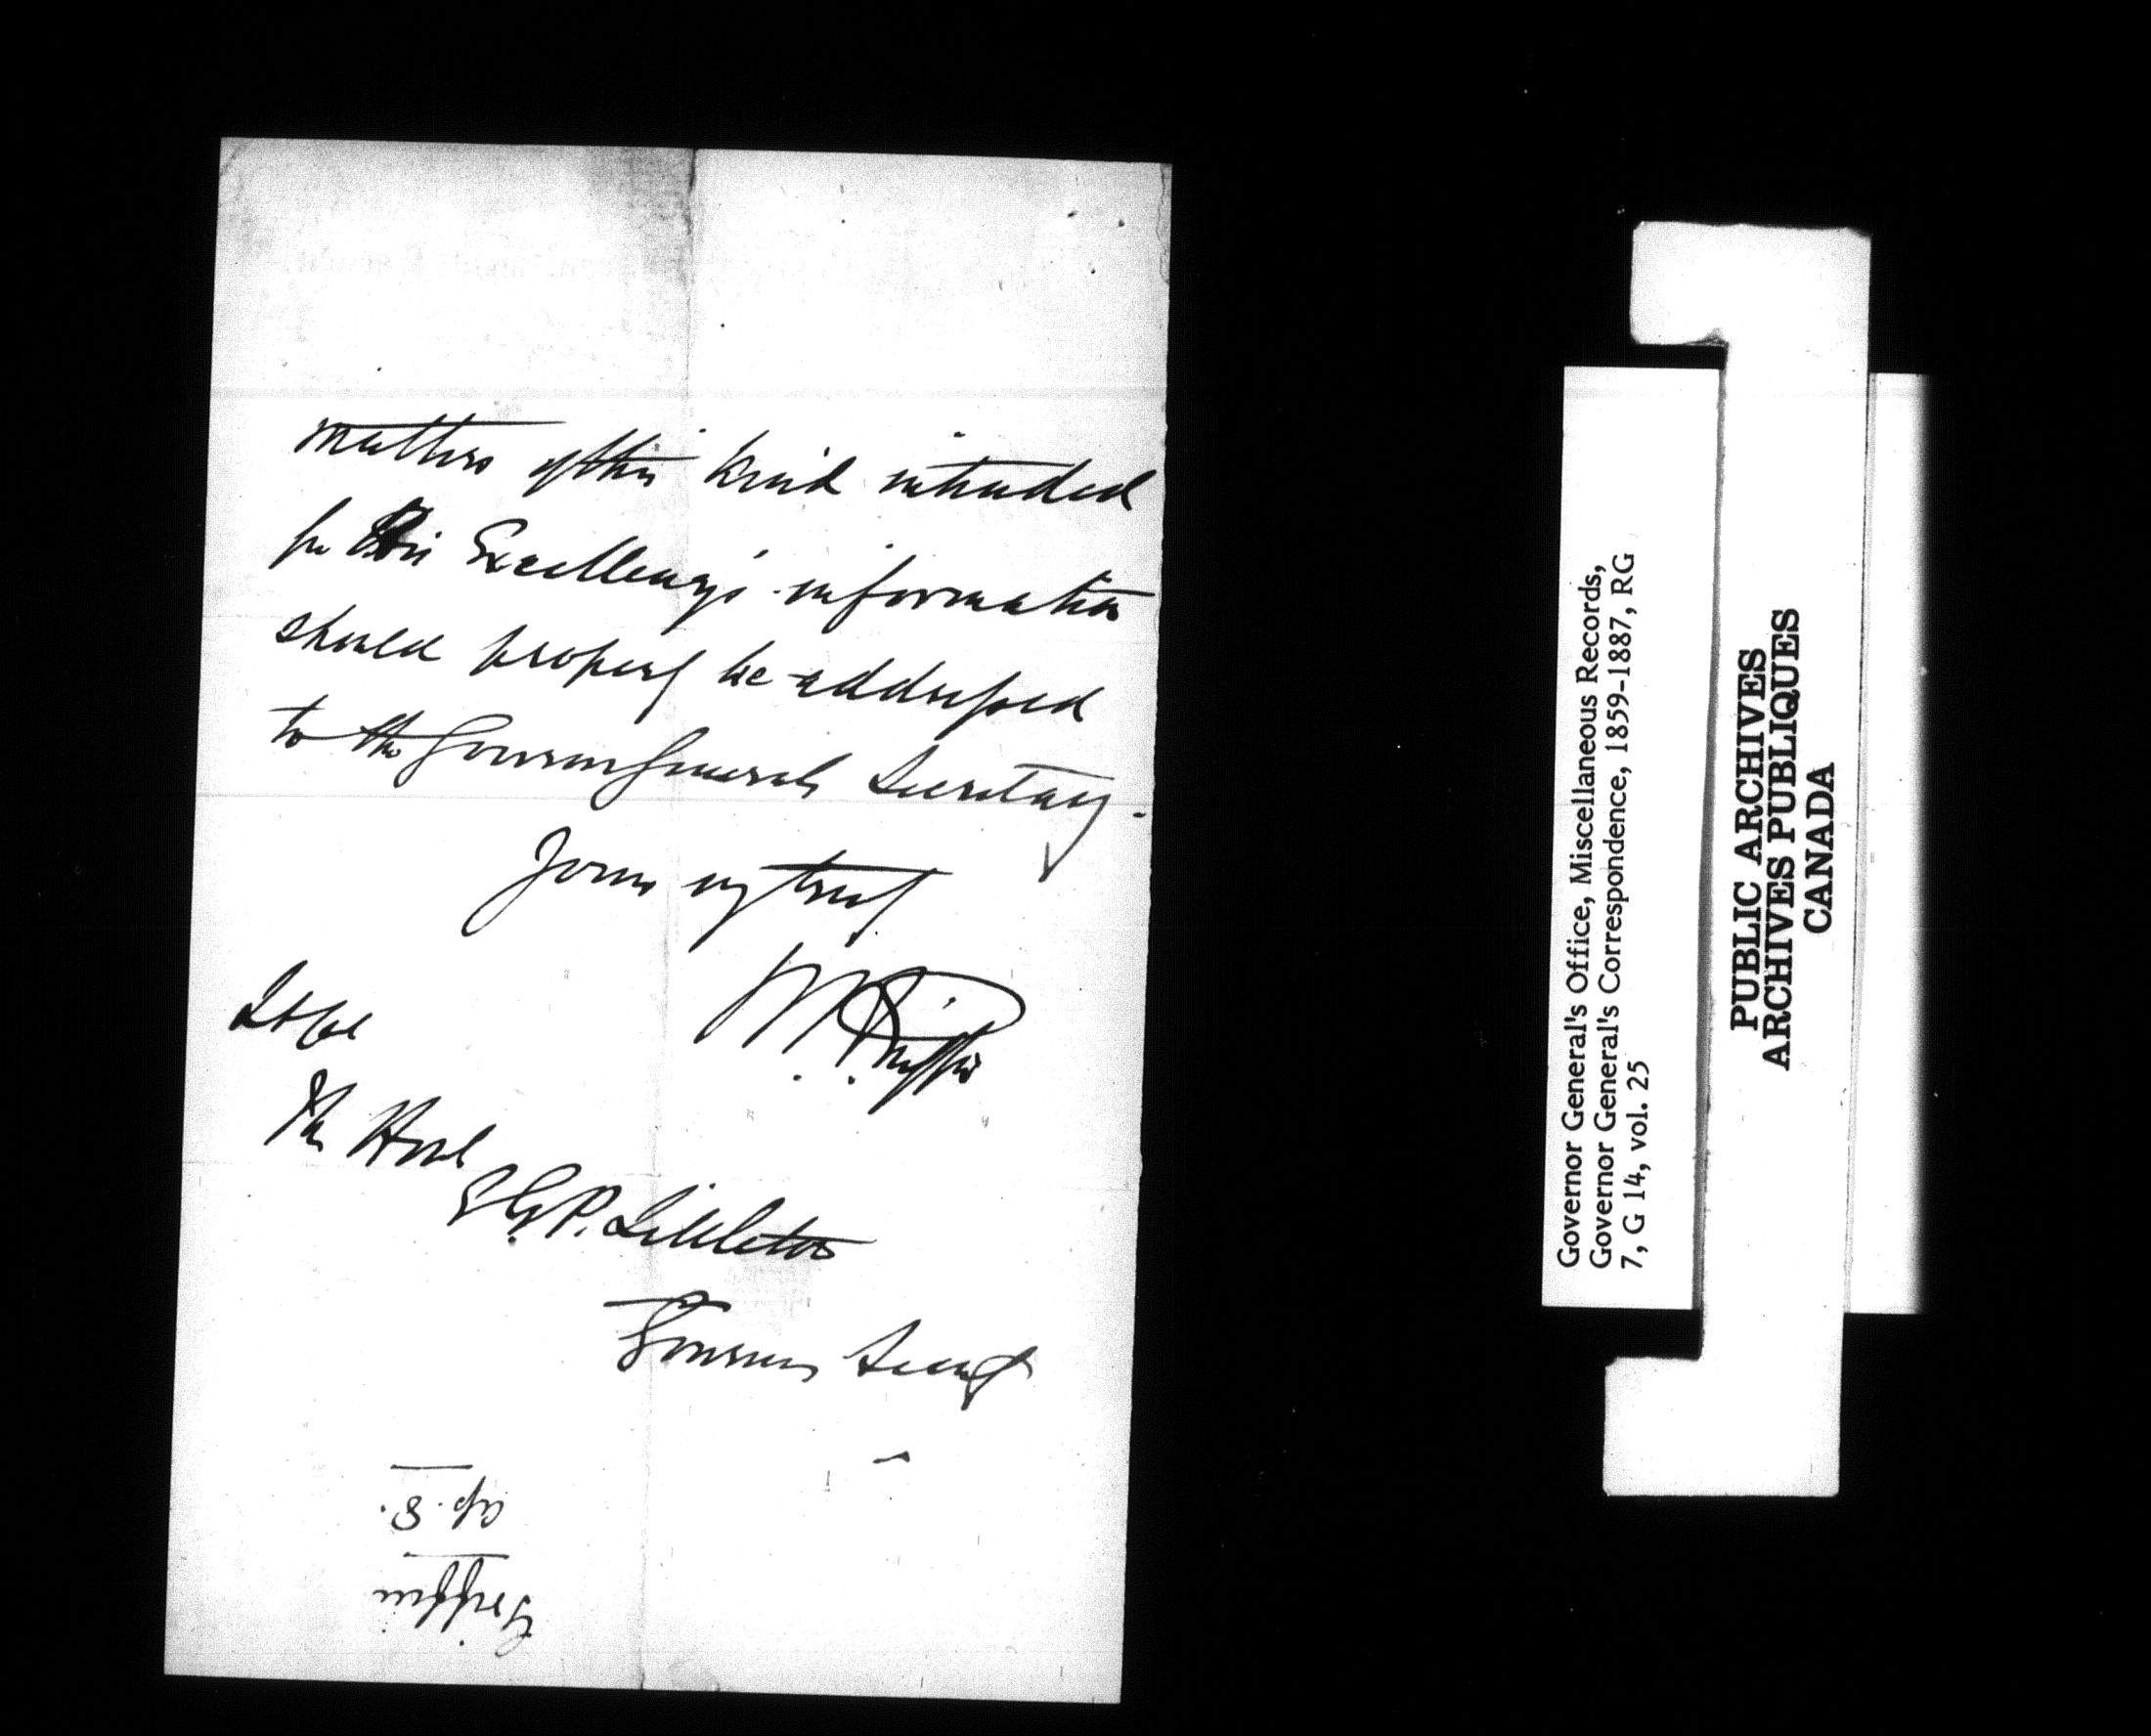 matters of this kind intended
for His Excellency's information
should properly be addressed
to the Governor General's Secretary.
Yours very truly
W. Griffin
Lt Col
The Honl
E. G. P. Littleton
Governors Secrety
Griffin
Ap. 8.
Governor General's Office, Miscellaneous Records,
Governor General's Correspondence, 1859-1887, RG
7, G 14, vol. 25
PUBLIC ARCHIVES
ARCHIVES PUBLIQUES
CANADA